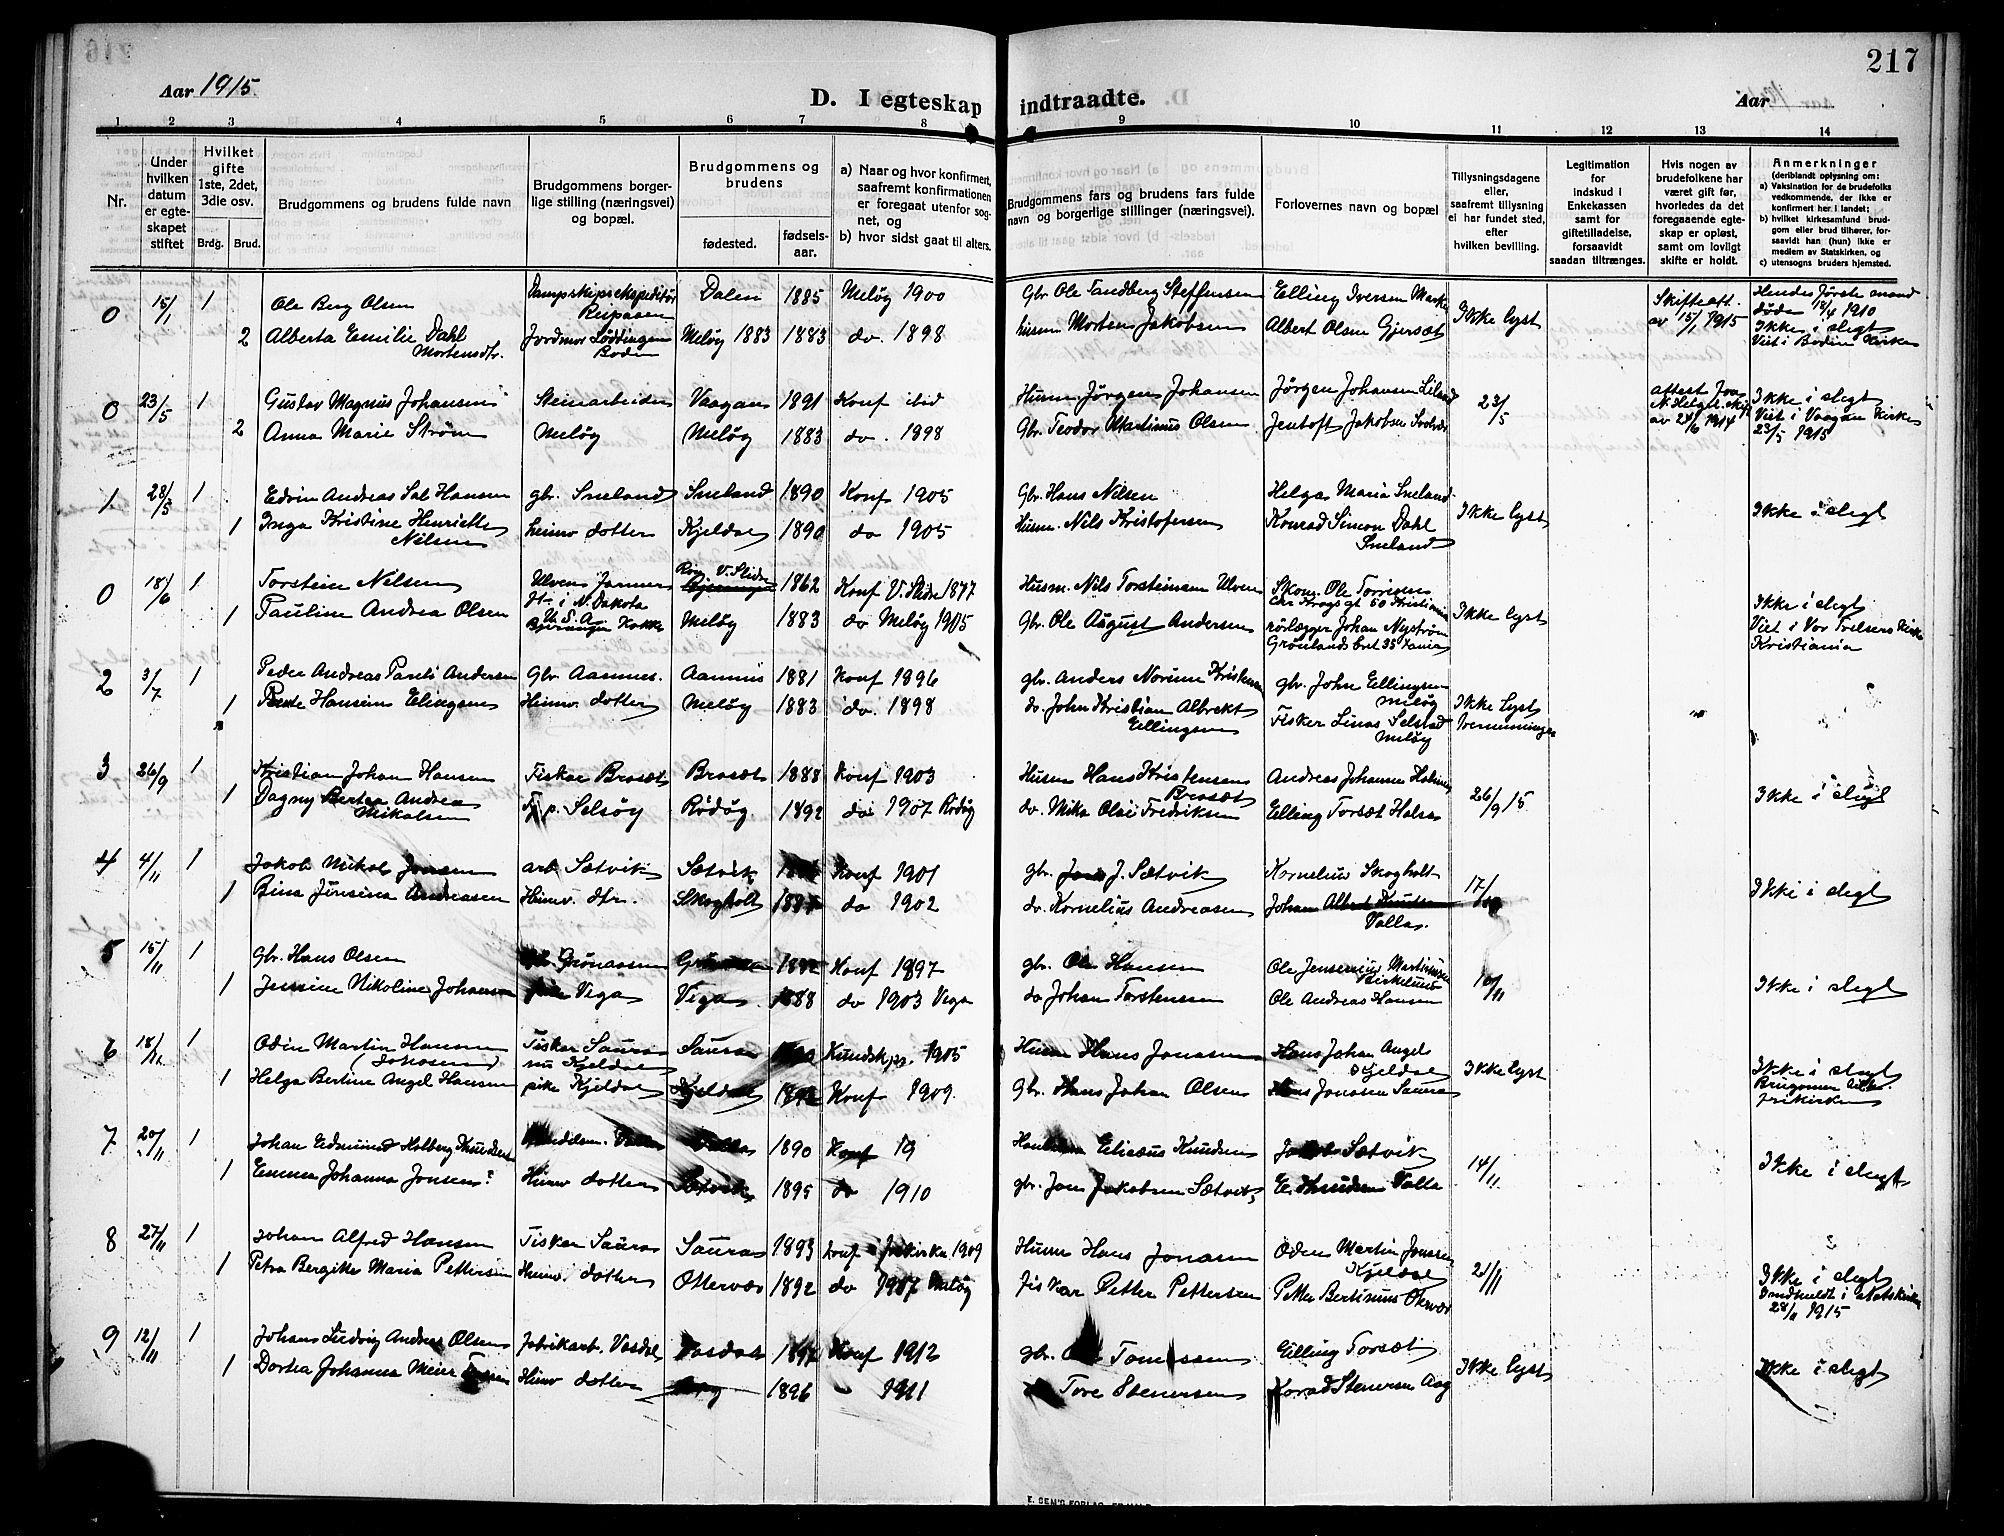 217
Aar 1915.
D. I egteskap indtraadte.
Aar
1 2 3 4 5 6 7 8 9 10 11 12 13 14
Nr.
Under hvilken datum er egteskapet stiftet
Hvilket gifte 1ste, 2det, 3die osv.
Brdg. Brud.
Brudgommens og brudens fulde navn
Brudgommens borgerlige stilling (næringsvei) og bopæl.
Brudgommens og brudens
fødested. fødselsaar.
a) Naar og hvor konfirmert, saafremt konfirmationen er foregaat utenfor sognet, og
b) hvor sidst gaat til alters.
Brudgommens fars og brudens fars fulde navn og borgerlige stillinger (næringsvei).
Forlovernes navn og bopæl
Tillysningsdagene eller, saafremt tillysning ei har fundet sted, efter hvilken bevilling.
Legitimation for indskud i Enkekassen samt for giftetilladelse, forsaavidt saadan tiltrænges.
Hvis nogen av brudefolkene har været gift før, hvorledes da det foregaaende egteskap er opløst, samt om lovligt skifte er holdt.
Anmerkninger
(deriblandt oplysning om:
a) Vaksination for de brudefolks vedkommende, der ikke er konfirmert her i landet;
b) hvilket kirkesamfund brudgom eller brud tilhører, forsaavidt han (hun) ikke er medlem av Statskirken, og
c) utensogns bruders hjemsted.
0 15/1 1 Ole Berg Olsen Dampskipsekspeditør Reipaaen Dalen 1885 Meløy 1900 Gbr Ole Tandberg Steffensen Elling Iversen Marke Ikke lyst Skifteatt. av 15/1 1915 Hendes første mand døde 14/4 1910
2 Alberta Emilie Dahl Mortensdtr. Jordmor Løddingen Bodin Meløy 1883 1883 do 1898 husm Morten Jakobsen Albert Olsen Gjersæt Ikke i slegt Viet i Bodin Kirke
0 23/5 1 Gustav Magnus Johansen Steinarbeider Vaagan 1891 Konf ibid Husm Jørgen Johansen Jørgen Johansen 23/5 attest fra av 24/6 1914 Ikke i slegt Viet i Vaagan Kirke 23/5 1915
2 Anna Marie Strøm Meløy Meløy 1883 do. 1898 Gbr. Teodor Martinus Olsen Jentoft Jakobsen
1 28/5 1 Edvin Andreas Sal. Hansen gbr. Sneland Sneland 1890 Konf 1905 Gbr. Hans Nilsen Helga Maria Sneland Ikke lyst Ikke i slegt
1 Inga Kristine Henriette Nilsen heimv dotter Kjeldal 1890 do 1905 Husm. Nils Kristofersen Konrad Simon Dahl Sneland
0 18/6 1 Torstein Nilsen Ulven N. Dakota U.S.A. V. Slidre 1862 Konf V. Slidre 1877 Husm. Nils Torsteinsen Ulven Ikke lyst Ikke i slegt
1 Pauline Andrea Olsen Meløy 1883 do Meløy 1905 Gbr. Ole August Andersen rørlægger Johan Nystrøm Viet i Vor Frelsers Kirke Kristiania
2 3/7 1 Peder Andreas Pauli Andersen Gbr Aamnes. Aamnes 1881 Konf 1896 gbr. Anders Norum Kristensen gbr. John Ellingsen Meløy Ikke Lyst
1 Hansine Elingsen Heimv. dotter Meløy 1883 do. 1898 do. John Kristian Albrekt Ellingsen Fisker Linas Selstad Meløy
3 26/9 1 Kristian Johan Hansen Fisker Brasæt Brasæt 1888 Konf 1903 Husm Hans Kristensen Brasæt Andreas Johansen 26/9 15 Ikke i slegt
1 Dagny Bertea Andrea Mikalsen p. Selsøy Rødøy 1892 do 1907 Rødøy do. Mika Olai Fredriksen Elling Torsæt Halsa
4 4/11 1 Jakob Mikal Jonsen arb Sætvik Sætvik Konf 1901 gbr. J. Sætvik Kornelius Skogholt 17/10 Ikke i slegt
1 Bina Jensina Andreasen Heimv. dtr. Skogholt do 1902 do. Kornelius Andreasen Johan Albert Knutsen Valla.
5 15/11 1 gbr. Hans Olsen Grønaasen Konf 1897 gbr. Ole Hansen Ole Jensenius Martinussen 10/11 Ikke i slegt
1 Jensine Nikoline Johansen Vega Vega 1888 do 1903 Vega do Johan Torstensen Ole Andreas Hansen
6 18/11 1 Odin Martin Hansen (Jonasen) Fisker Saura nu Kjeldal Saura Kundskpr. 1905 Husm Hans Jonasen Hans Johan Angel Kjeldal Ikke lyst Ikke i slegt Brugomen frikirken
1 Helga Bertine Angel Hansen pike Kjeldal Kjeldal 1892 Konf 1909. Gbr. Hans Johan Olsen Hans Jonasen Saura
7 20/11 1 Johan Edmund Holberg Knudsen Valla 1890 Konf 19 Eliæus Knudsen Jakob Sætvik 14/11 Ikke i slegt
1 Emma Johanna Jonsen? Heimv dotter Sætvik 1895 do 1910 gbr. Jon Jakobsen Sætvik E. Knudsen Valla
8 27/11 1 Johan Alfred Hansen Fisker Saura Saura 1893 Konf frikirke 1909 Husm Hans Jonasen Odin Martin Jonsen Kjeldal 21/11 Ikke i slegt
1 Petra Bergitte Maria Pettersen Heimv. dotter Otterver 1892 do 1907 Meløy Fisker Petter Pettersen Petter Bertinius Oterver Indmeldt i Statskirken 28/11 1915
9 12/11 1 Johans Ludvig Andreas Olsen Fabrikarb. Vasdal Vasdal 1897 Konf 1912 gbr. Ole Tomassen Elling Torsæt Ikke lyst Ikke i slegt
1 Dortea Johanna Meier Toresen Heimv dotter 1896 1911 Tore Stenersen Konrad Stenersen Aag